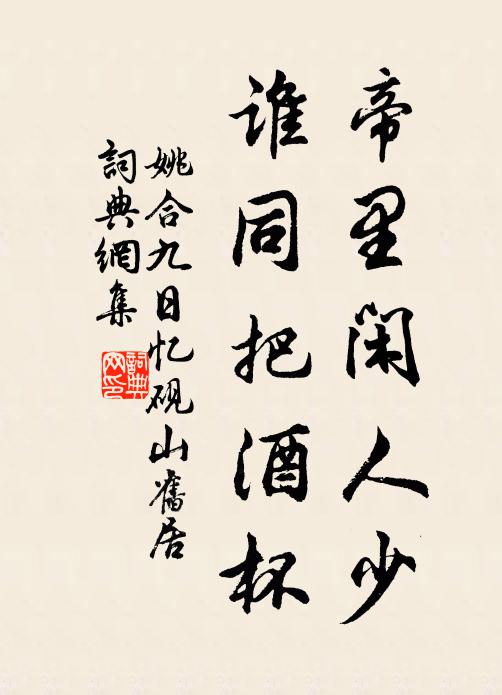 帝里闲人少
谁同把酒杯
姚合九日忆砚山舊居
詞典網集
詞典网印